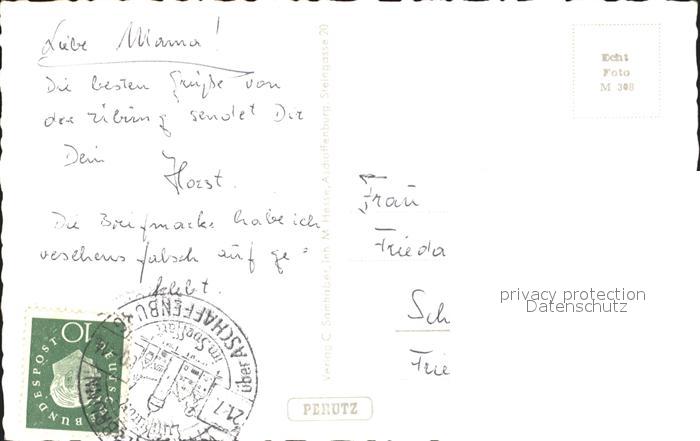 Liebe Mama!
Die besten Grüße von
der Übung sendet Dir
Dein
Horst.
Die Briefmarke habe ich
versehens falsch auf ge-
klebt.
Echt
Foto
M 308
Verlag C. Samhaber, Inh. M. Hesse, Aschaffenburg, Steingasse 20
Frau
Frieda
Sch
Frie
privacy protection
Datenschutz
PERUTZ
10
BUNDESPOST
DEUTSCHE
über ASCHAFFENBURG
im Spessart
21.7